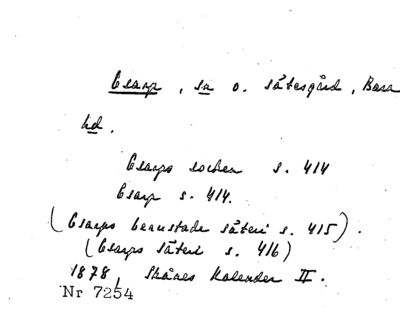 Esarp, sn o. sätesgård, Bara
hd.
Esarps socken s. 414
Esarp s. 414.
(Esarps beaustade säteri s. 415).
(Esarps säteri s. 416)
1878, Skånes Kalender II.
Nr 7254